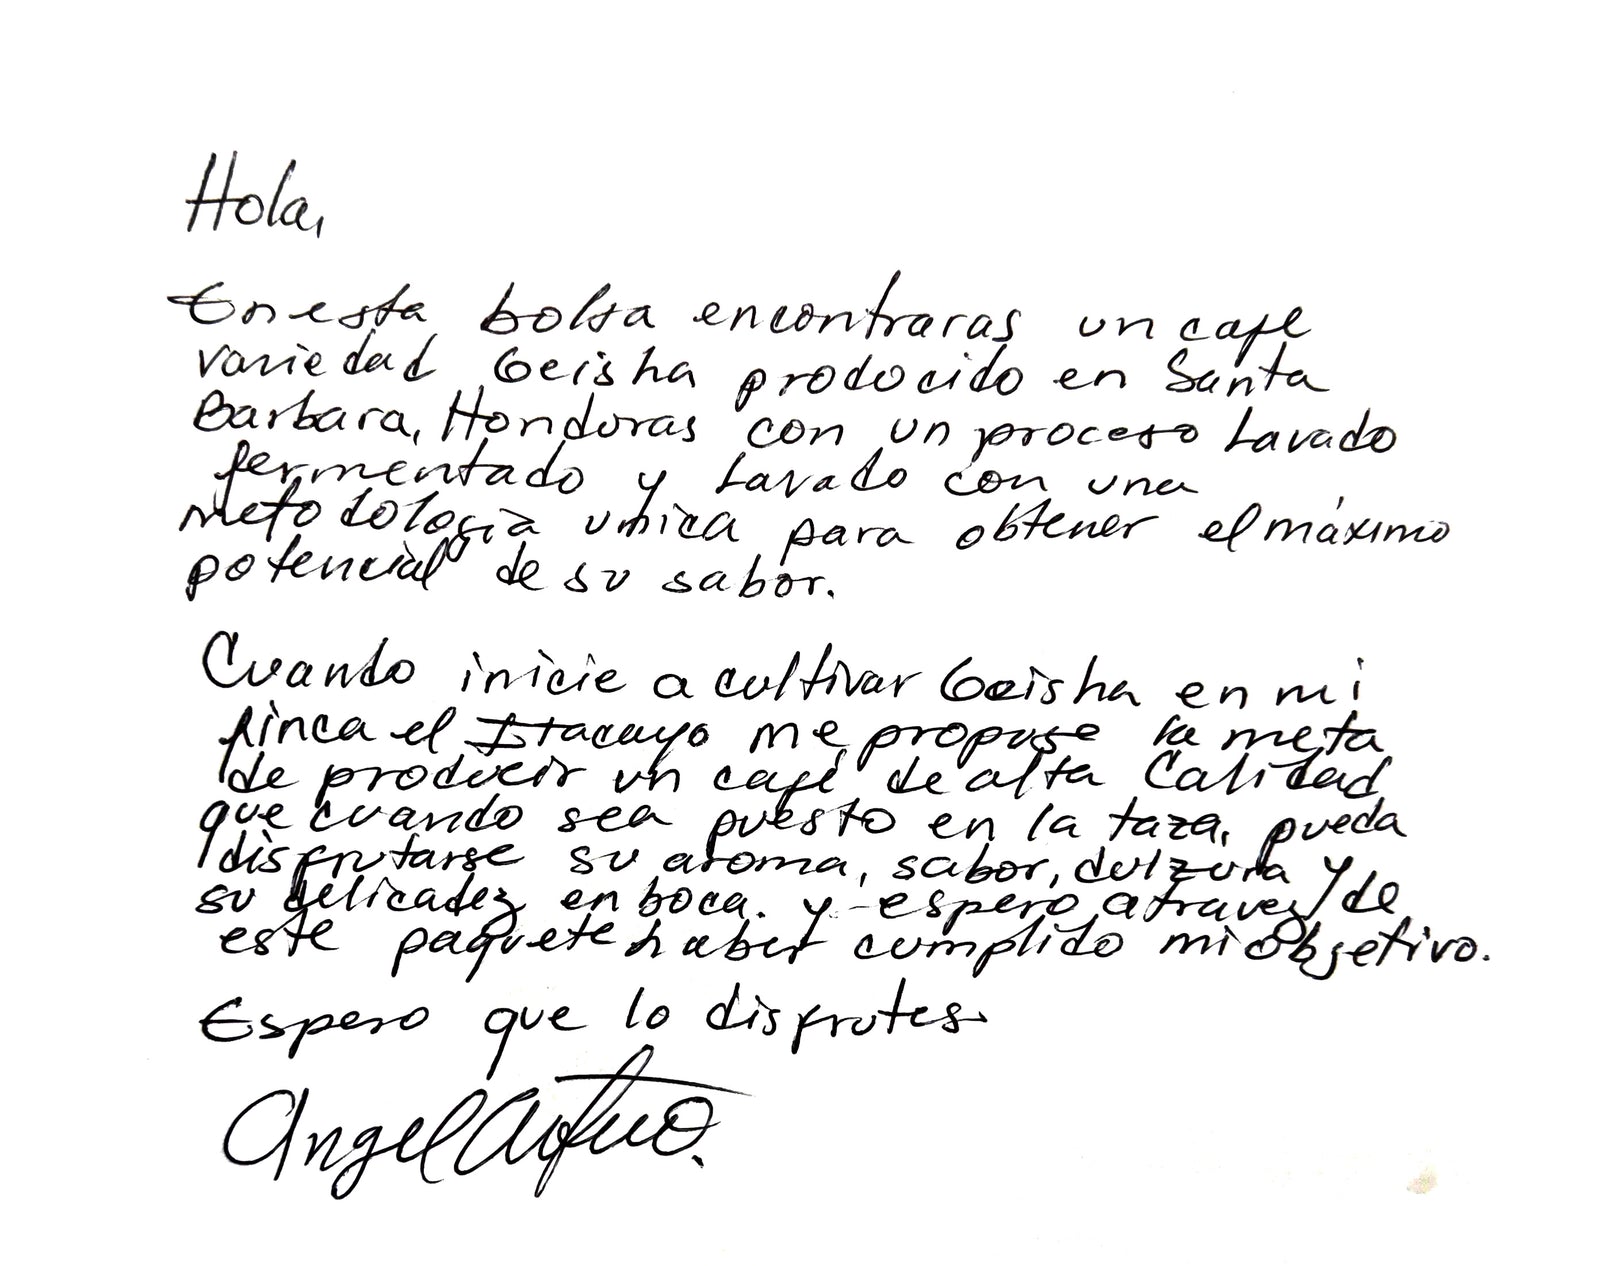 Hola,
En esta bolsa encontraras un cafe
variedad Geisha producido en Santa
Barbara, Honduras con un proceso Lavado
fermentado y Lavado con una
metodologia unica para obtener el máximo
potencial de su sabor.
Cuando inicie a cultivar Geisha en mi
finca el Itacayo me propuse la meta
de producir un café de alta Calidad
que cuando sea puesto en la taza, pueda
disfrutarse su aroma, sabor, dulzura y
su delicadez en boca. y espero atravez de
este paquete haber cumplido mi objetivo.
Espero que lo disfrutes.
Angel Arturo.